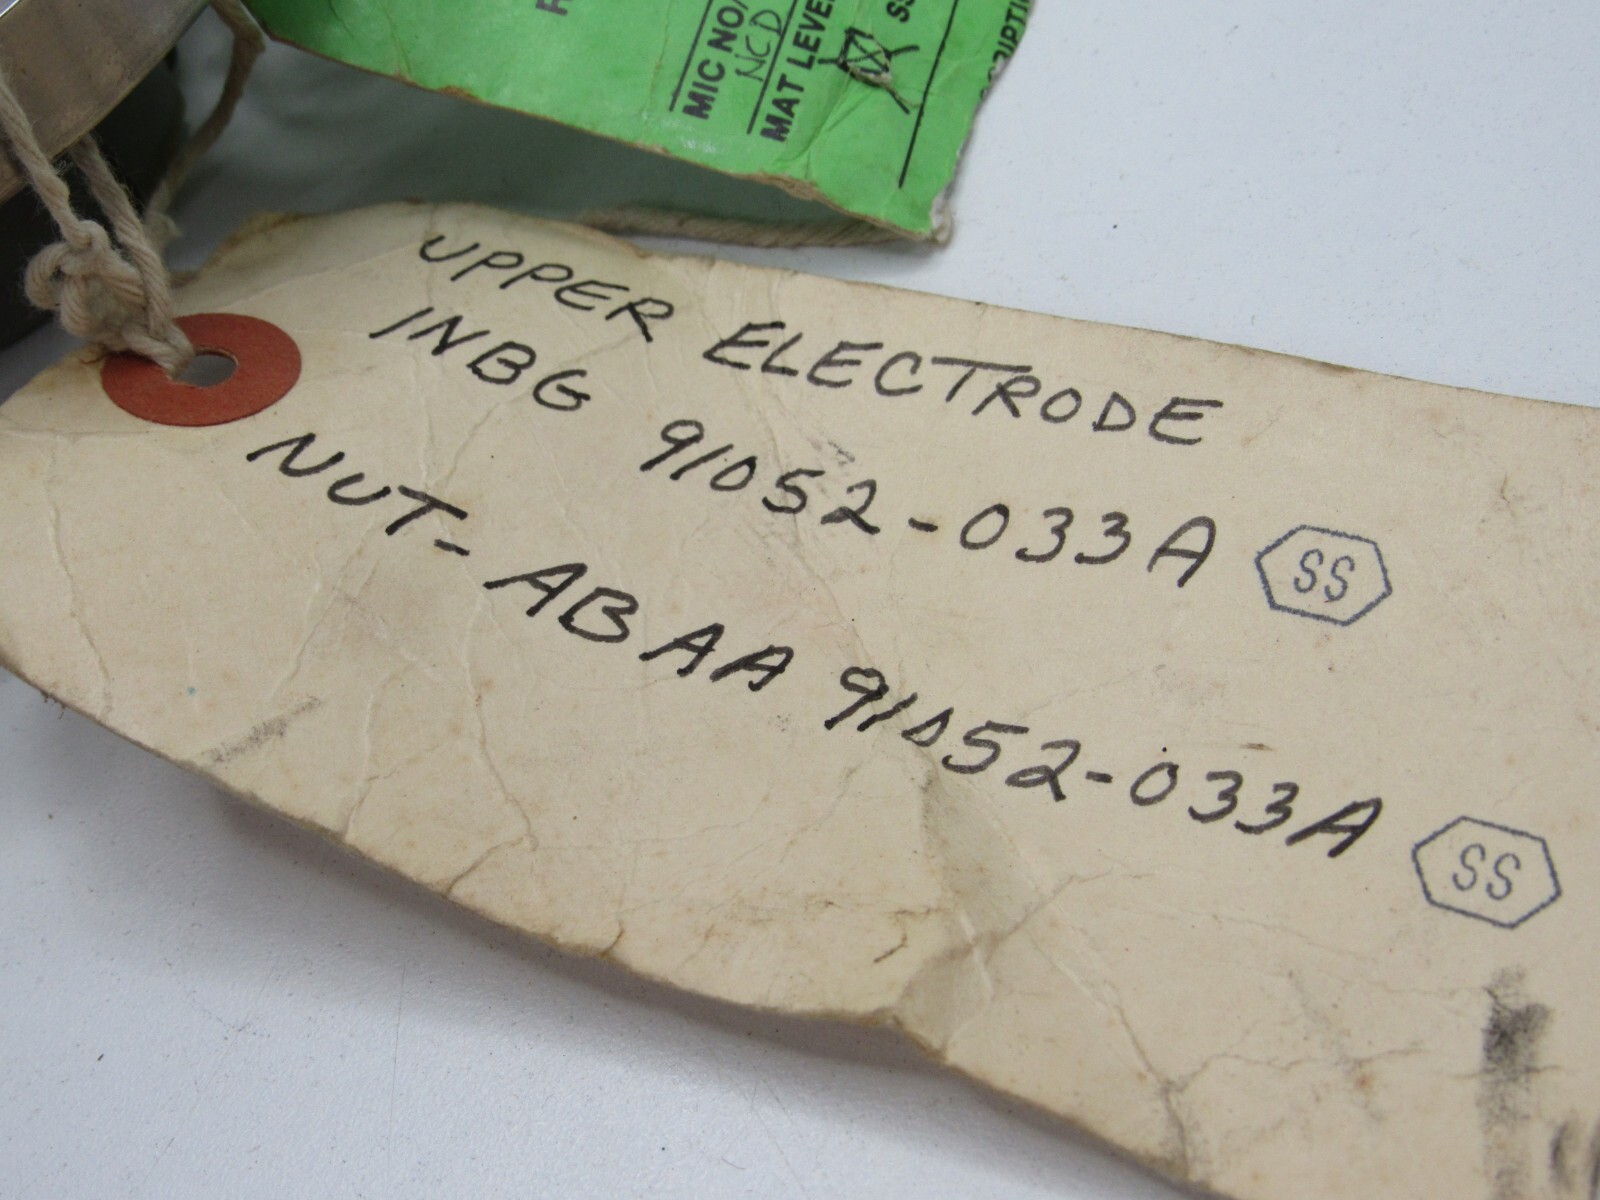 MIC NO
NCD
MAT LEVE
UPPER ELECTRODE
INBG 91052-033A SS
NUT- ABAA 91052-033A SS